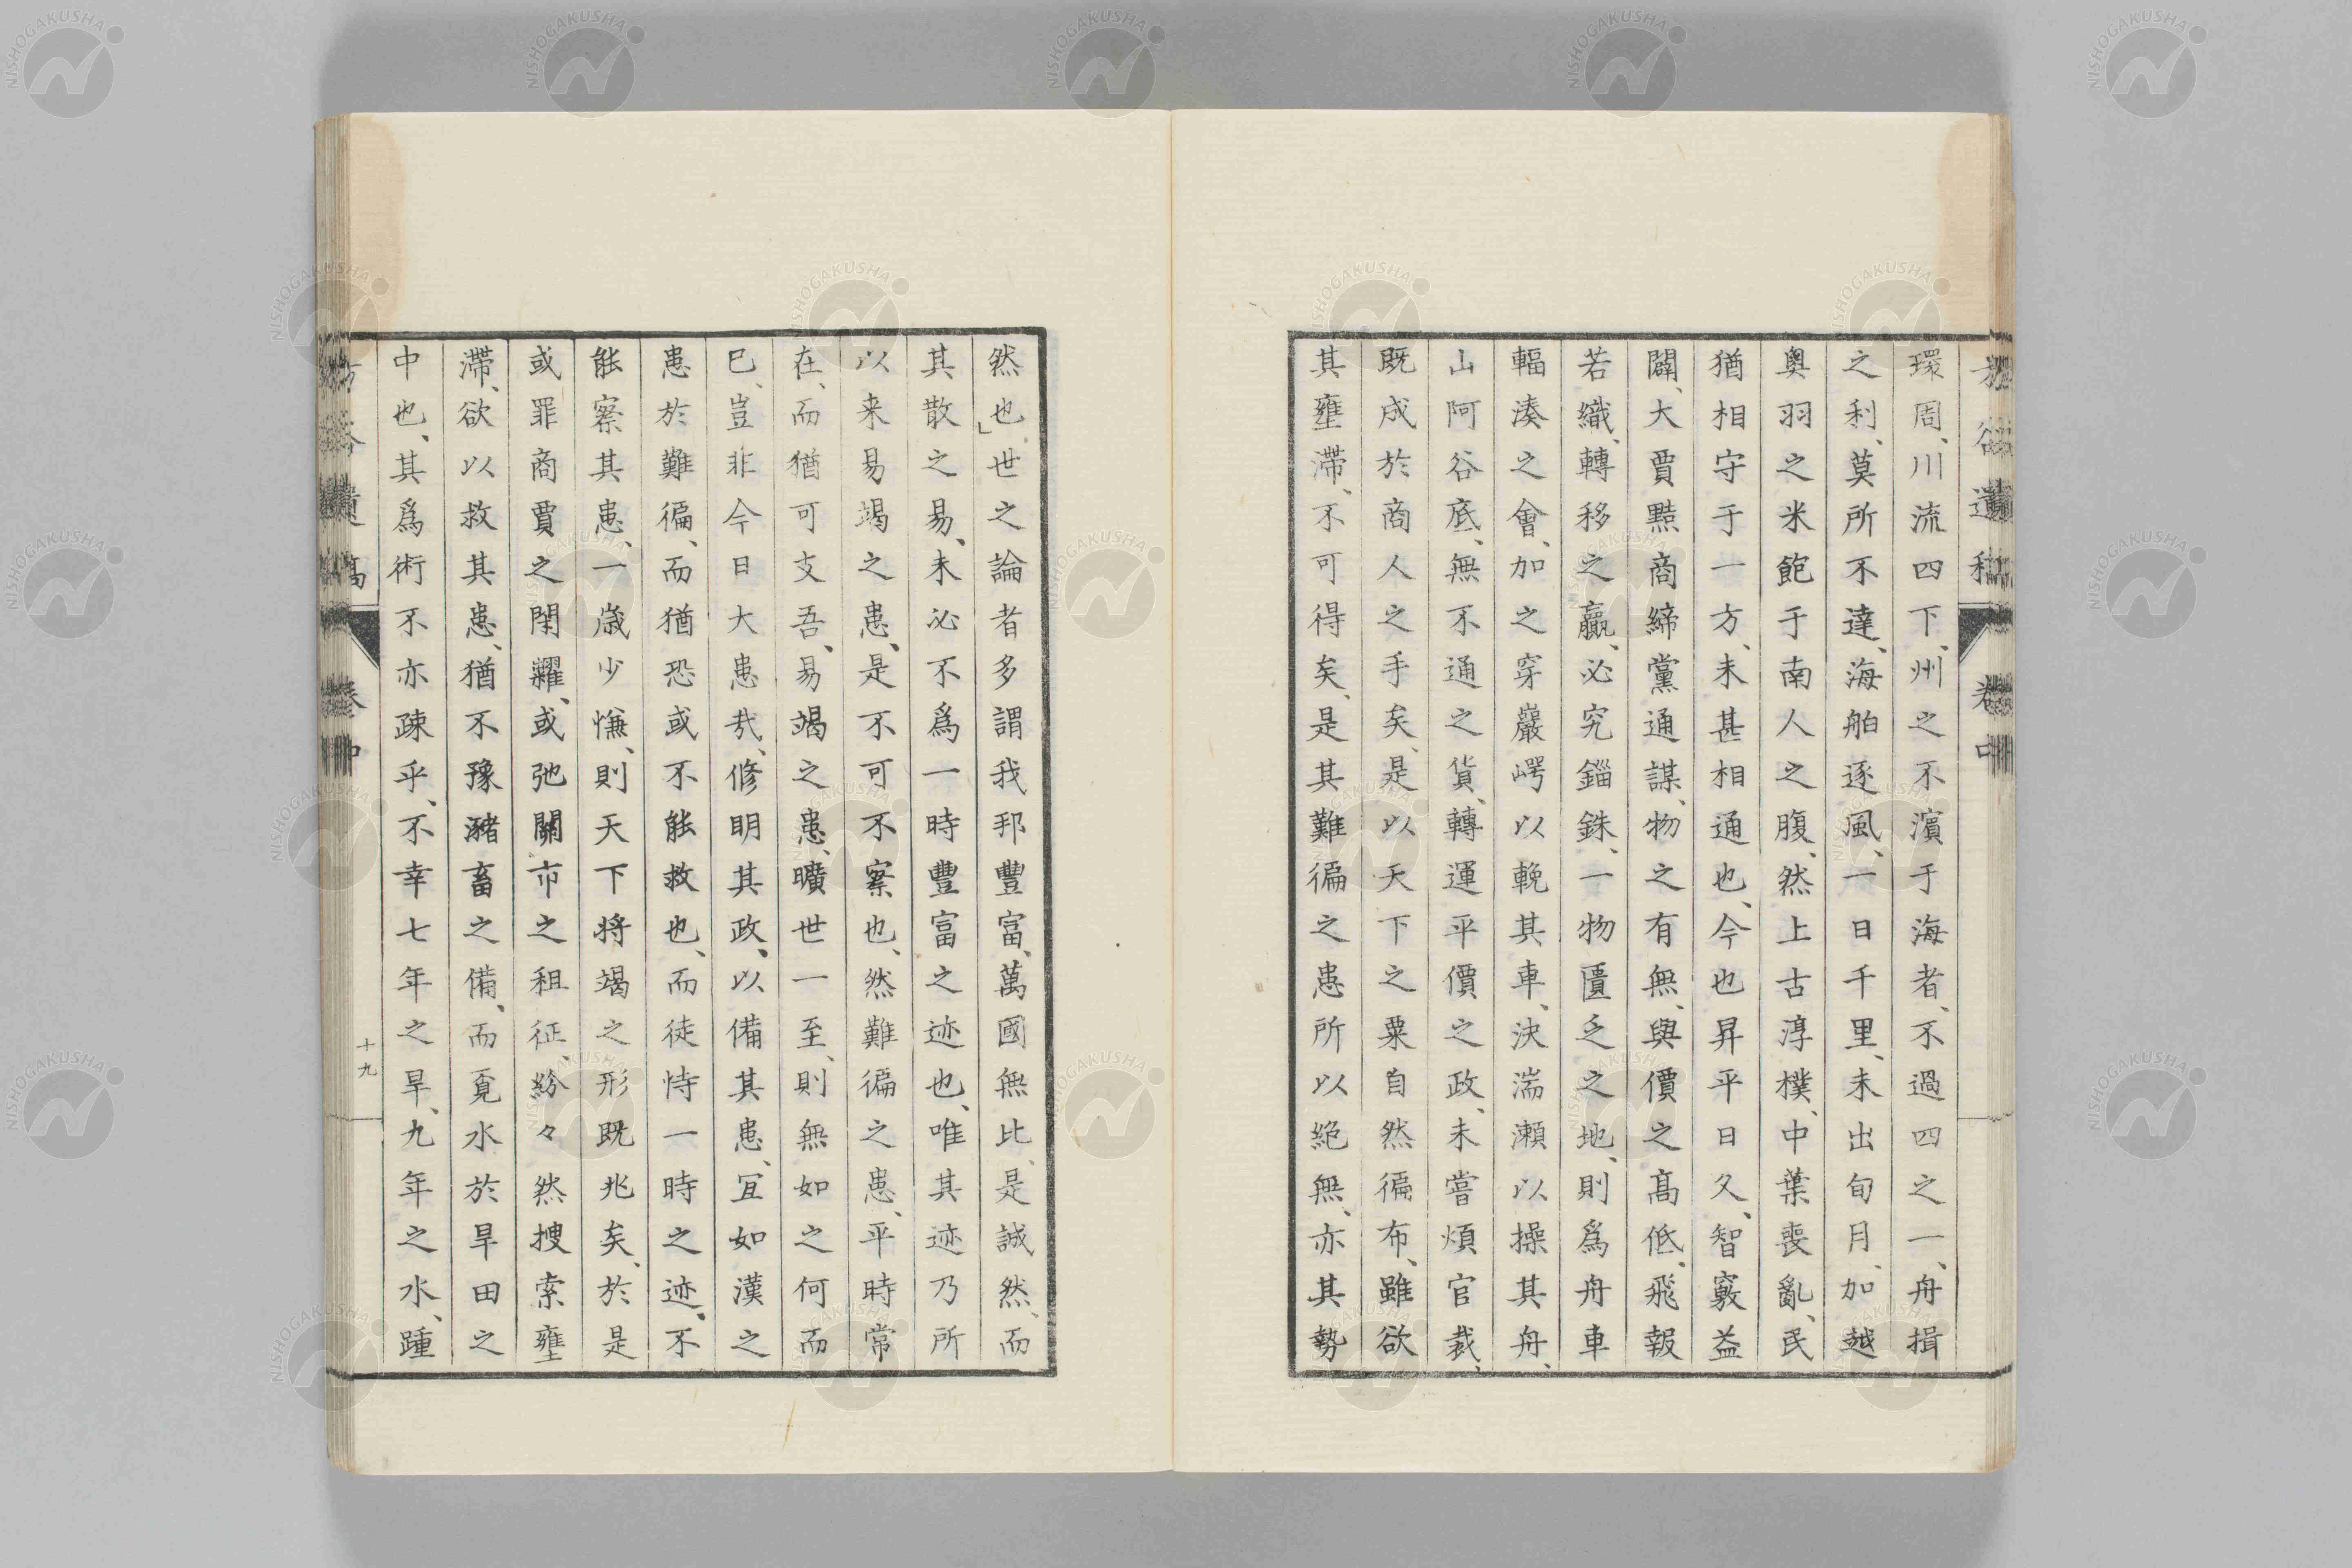 環周、川流四下、州之不濱于海者、不過四之一、舟揖
之利、莫所不達、海舶逐風、一日千里、未出旬月、加越
奧羽之米飽于南人之腹、然上古淳樸、中葉喪亂、民
猶相守于一方、未甚相通也、今也昇平日久、智竅益
闢、大賈黠商締黨通謀、物之有無、與價之髙低、飛報
若織、轉移之贏、必究錙銖、一物匱乏之地、則爲舟車
輻湊之會、加之穿巖崿以輓其車、決湍瀬以操其舟、
山阿谷底、無不通之貨、轉運平價之政、未嘗煩官裁、
既成於商人之手矣、是以天下之粟自然徧布、雖欲
其壅滯、不可得矣、是其難徧之患所以絶無、亦其勢
然也」世之論者多謂我邦豐富、萬國無比、是誠然、而
其散之易、未必不爲一時豐富之迹也、唯其迹乃所
以来易竭之患、是不可不察也、然難徧之患、平時常
在、而猶可支吾、易竭之患、曠世一至、則無如之何而
已、豈非今日大患哉、修明其政、以備其患、冝如漢之
患於難徧、而猶恐或不能救也、而徒恃一時之迹、不
能察其患、一歳少慊、則天下将竭之形既兆矣、於是
或罪商賈之閉糶、或弛關市之租征、紛々然捜索壅
滯、欲以救其患、猶不豫瀦畜之備、而覓水於旱田之
中也、其爲術不亦疎乎、不幸七年之旱、九年之水、踵
十九
NISHOGAKUSHA